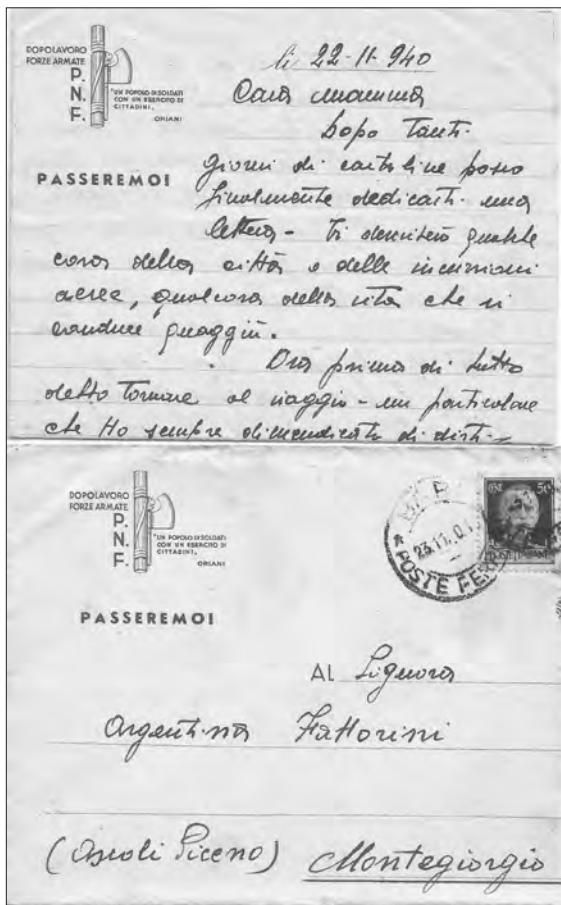 DOPOLAVORO
FORZE ARMATE
P.
N.
F.
"UN POPOLO DI SOLDATI
CON UN ESERCITO DI
CITTADINI"
ORIANI
PASSEREMO!
lì 22-11-940
Cara mamma
Dopo tanti
giorni di cartoline posso
finalmente dedicarti una
lettera - Ti descriverò qualche
cosa della città e delle incursioni
aeree, qualcosa della vita che si
conduce quaggiù.
Ora prima di tutto
detto tornare al viaggio - un particolare
che Ho sempre dimenticato di dirti -
DOPOLAVORO
FORZE ARMATE
P.
N.
F.
"UN POPOLO DI SOLDATI
CON UN ESERCITO DI
CITTADINI"
ORIANI
PASSEREMO!
23.11.
POSTE
50
AL Signora
Argentina Fattorini
(Ascoli Piceno) Montegiorgio